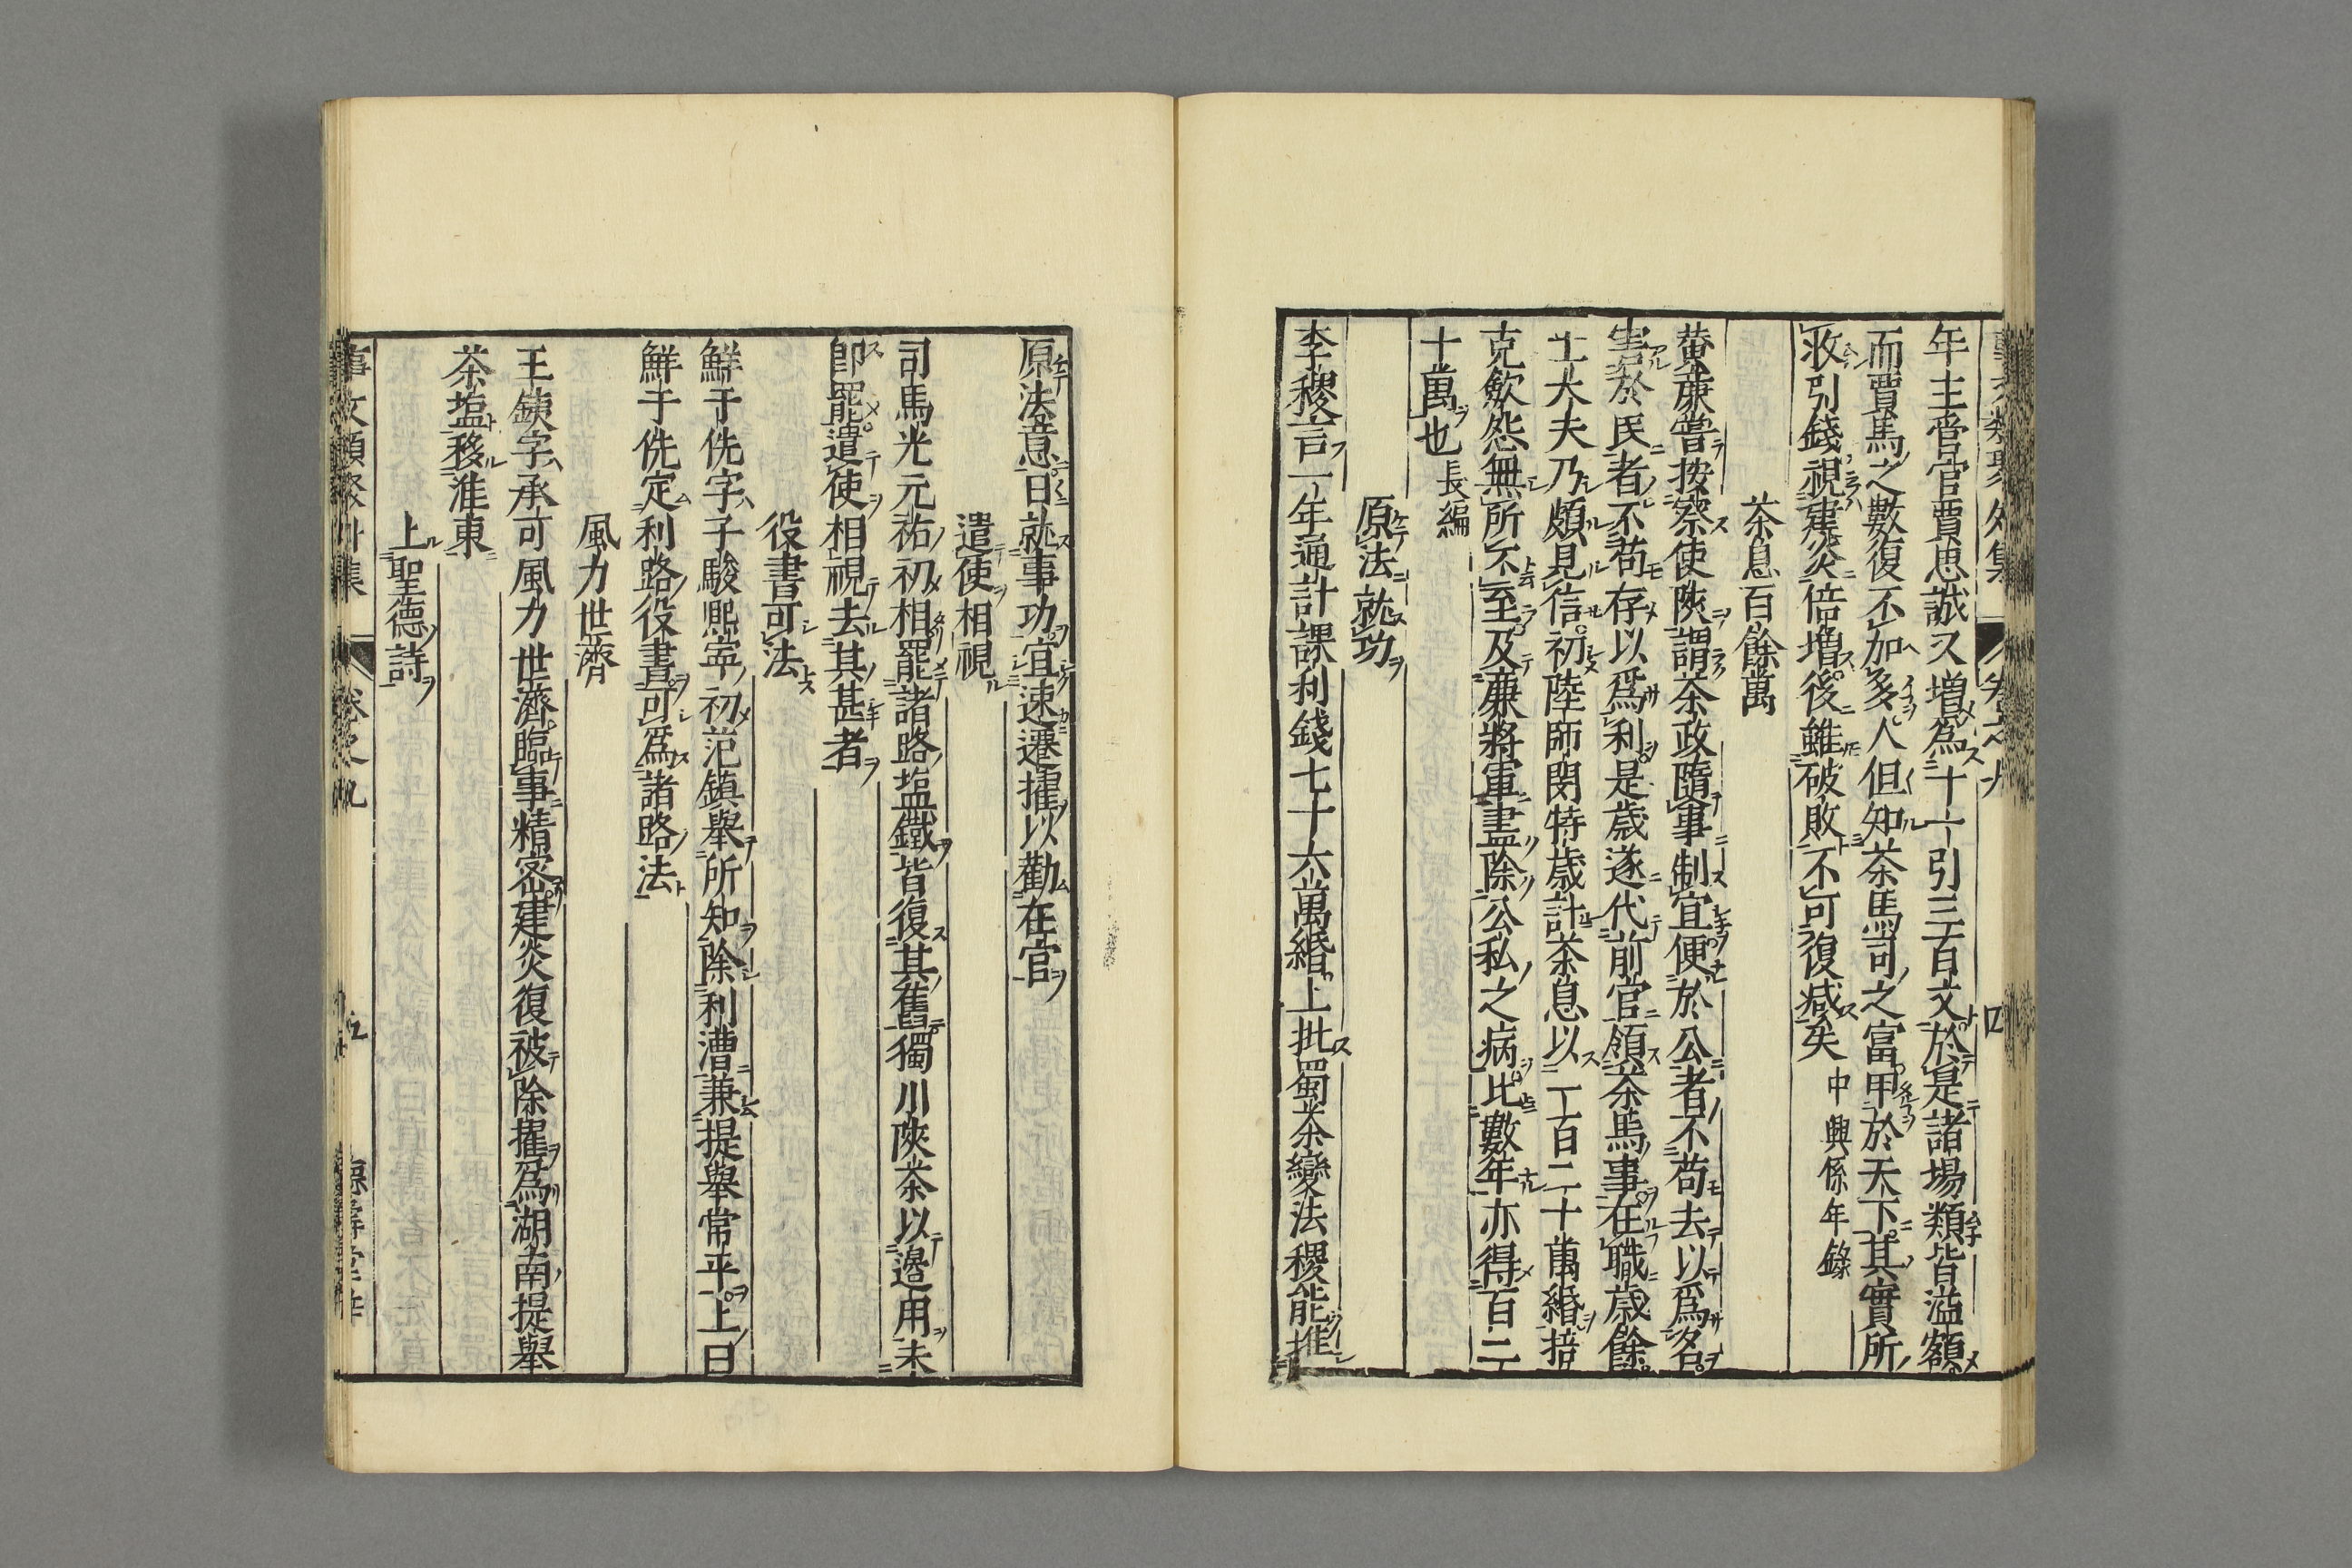 年主管官賈思誠又增爲十一引三百文於是諸場類皆溢額
而賈馬之數復不加多人但知茶馬司之富甲於天下其實所
收引錢視建炎倍增後雖破敗不可復减矣 中興係年錄
茶息百餘萬
黄廉嘗按察使陝謂茶政隨事制宜便於公者不苟去以爲名
害於民者不苟存以爲利是歲遂代前官領茶馬事在職歲餘
士大夫乃頗見信初陸師閔特歲計茶息以一百二十萬緡掊
克歛怨無所不至及廉將軍盡除公私之病比數年亦得百二
十萬也 長編
原法就功
李稷言一年通計課利錢七十六萬緡上批蜀茶變法稷能推
原法意日就事功宜速遷擢以勸在官
遣使相視
司馬光元祐初相罷諸路塩鐵皆復其舊獨川陝茶以邊用未
即罷遣使相視去其甚者
役書可法
鮮于侁字子駿熙寕初范鎮舉所知除利漕兼提舉常平上曰
鮮于侁定利路役書可爲諸路法
風力世濟
王鉄字承可風力世濟臨事精密建炎復被除擢爲湖南提舉
茶塩移淮東
上聖德詩
事文類聚外集 卷之九 五